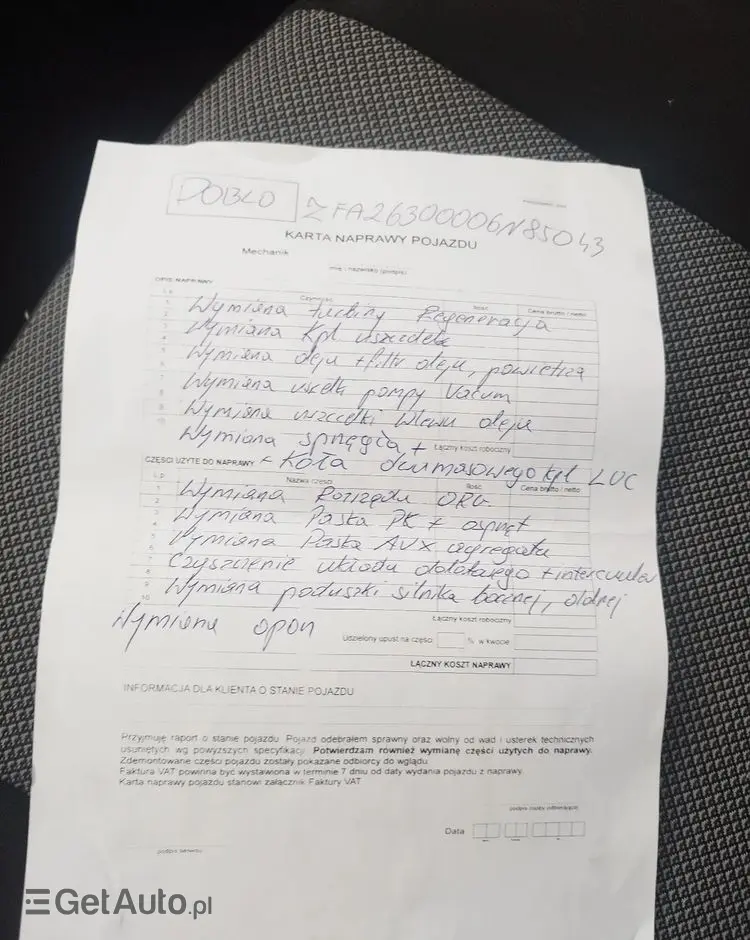 DOBLO ZFA26300006N85043
KARTA NAPRAWY POJAZDU
Mechanik
imię i nazwisko (podpis)
OPIS NAPRAWY
L.p. Czynność Ilość Cena brutto / netto
1 Wymiana turbiny Regeneracja
2
3 Wymiana Kpl uszczelek
4
5 Wymiana oleju + filtr oleju, powietrza
6
7 Wymiana uszczelk pompy Vacum
8
9 Wymiana uszczelki wlewu oleju
10
Wymiana sprzęgła + Łączny koszt robocizny
CZĘŚCI UŻYTE DO NAPRAWY + Koła dwumasowego kpl LUC
L.p. Nazwa części Ilość Cena brutto / netto
1 Wymiana Rozrządu ORG.
2
3 Wymiana Paska PK + osprzęt
4
5 Wymiana Paska AVX agregatu
6
7 Czyszczenie układu dolotowego + intercooler
8
9 Wymiana poduszki silnika bocznej, dolnej
10
Łączny koszt robocizny
Wymiana opon
Udzielony upust na części % w kwocie
ŁĄCZNY KOSZT NAPRAWY
INFORMACJA DLA KLIENTA O STANIE POJAZDU
Przyjmuję raport o stanie pojazdu. Pojazd odebrałem sprawny oraz wolny od wad i usterek technicznych
usuniętych wg powyższych specyfikacji. Potwierdzam również wymianę części użytych do naprawy.
Zdemontowane części pojazdu zostały pokazane odbiorcy do wglądu.
Faktura VAT powinna być wystawiona w terminie 7 dniu od daty wydania pojazdu z naprawy.
Karta naprawy pojazdu stanowi załącznik Faktury VAT
podpis osoby odbierającej
Data
podpis serwisu
GetAuto.pl